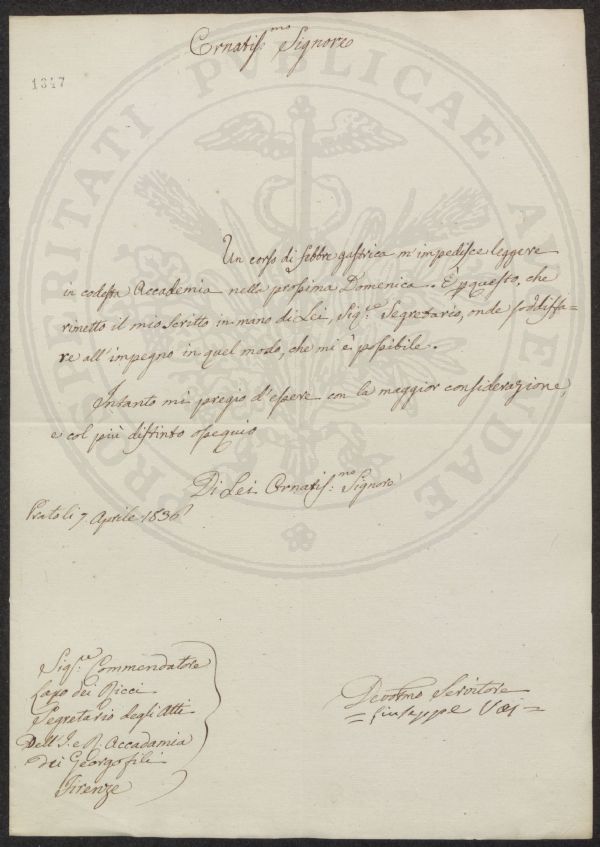 Ornatiss.mo Signore
1347
PROSPERITATI PVBLICAE AVGENDAE
Un corso di febbre gastrica m'impedisce leggere
in codesta Accademia nella prossima Domenica. È p questo, che
rimetto il mio Scritto in mano di Lei, Sig.re Segretario, onde soddisfa=
re all'impegno in quel modo, che mi è possibile.
Intanto mi pregio d'essere con la maggior considerazione,
e col più distinto ossequio
Di Lei Ornatiss.mo Signore
Prato li 7. Aprile 1836
Sig.re Commendatore
Lapo dei Ricci
Segretario degli Atti
Dell'I. e R. Accadamia
dei Georgofili
Firenze
Devotmo Servitore
=Giuseppe Vai=